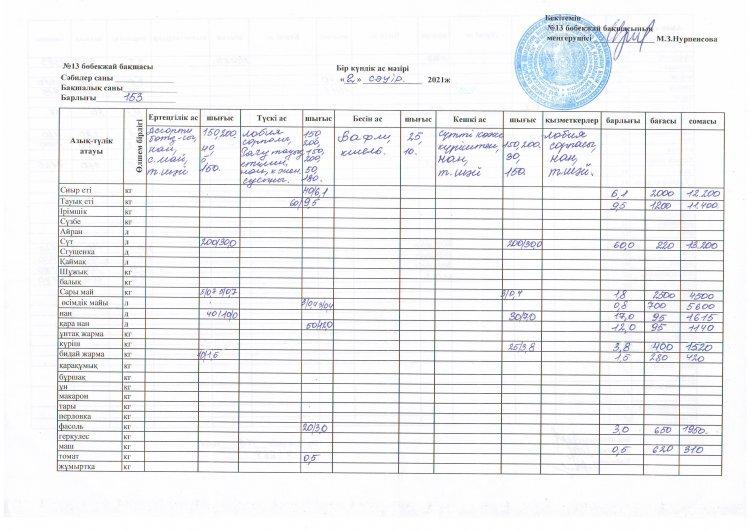 Бекітемін
№13 бөбекжай бақшасының
меңгерушісі М.З.Нурпенсова
№13 бөбекжай бақшасы
Сәбилер саны
Бақшалық саны
Барлығы 153
Бір күндік ас мәзірі
«2» сәуір. 2021ж
Азық-түлік атауы Өлшем бірлігі Ертеңгілік ас шығыс Түскі ас шығыс Бесін ас шығыс Кешкі ас шығыс қызметкерлер барлығы бағасы сомасы
Ассорти 150/200, лобия 150 Вафли, 25, Сүтті көже 150,200. лобия
сорпасы, 200, 10. күрішпен, 30, сорпасы,
нан, 40, 150, нан, 150. нан,
с.май, 5, 200, т.шәй т.шәй.
т.шәй 150. 50,
180.
Сиыр еті кг 40/6,1 6,1 2000 12.200
Тауық еті кг 60/9,5 9,5 1200 11.400
Ірімшік кг
Сүзбе кг
Айран л
Сүт л 200/30,0 200/30,0 60,0 220 13.200
Сгущенка л
Қаймақ л
Шұжық кг
балық кг
Сары май кг 5/0,7 5/0,7 3/0,4 1,8 2500 4500
өсімдік майы л 3/0,4 3/0,4 0,8 700 5600
нан л 40/10,0 30/7,0 17,0 95 1615
қара нан л 50/12,0 12,0 95 1140
ұнтақ жарма кг
күріш кг 25/3,8 3,8 400 1520
бидай жарма кг 10/1,5 1,5 280 420
қарақұмық кг
бұршақ кг
ұн кг
макарон кг
тары кг
перловка кг
фасоль кг 20/3,0 3,0 650 1950.
геркулес кг
маш кг 0,5 620 310
томат кг 0,5
жұмыртқа кг